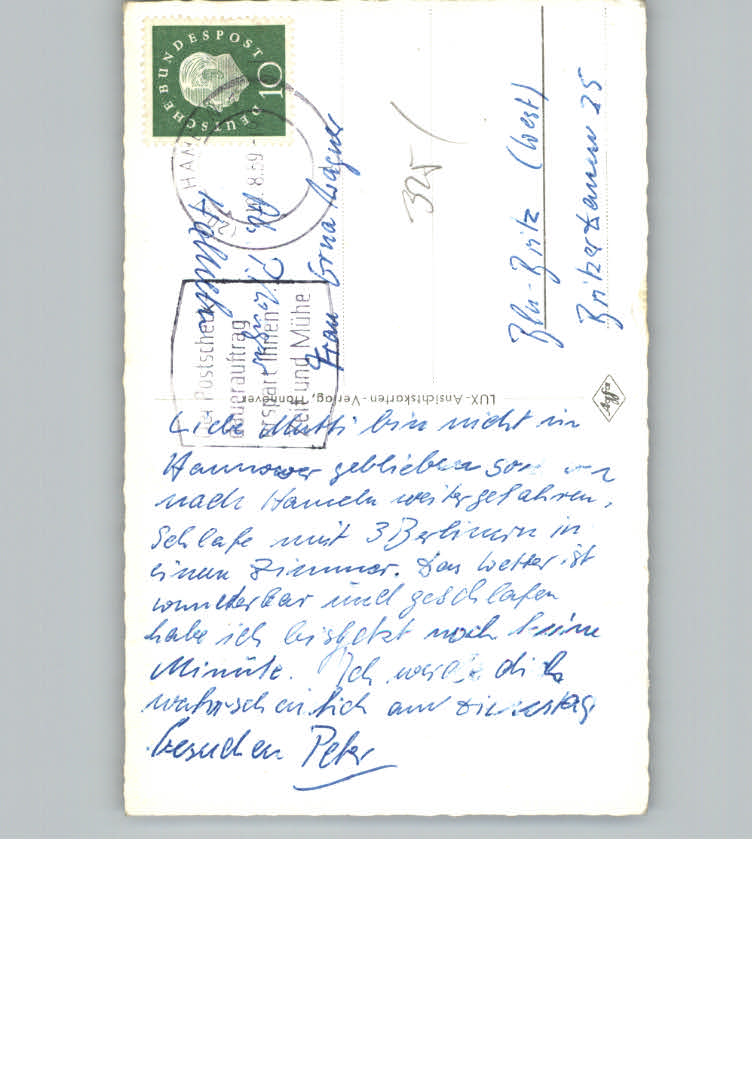 DEUTSCHE BUNDESPOST
10
HAN
8.59
Postscheck
Dauerauftrag
erspart Ihnen
Zeit und Mühe
Abs.
Frau Erna Wagner
325/
Bln-Britz (West)
Britzerdamm 25
LUX-Ansichtskarten-Verlag, Hannover
Agfa
Liebe Mutti bin nicht in
Hannover geblieben
nach Hameln weitergefahren.
Schlafe mit 3 Berlinern in
einem Zimmer. Das Wetter ist
wunderbar und geschlafen
habe ich bis jetzt noch keine
Minute. Ich werde dich
wahrscheinlich am Dienstag
besuchen Peter